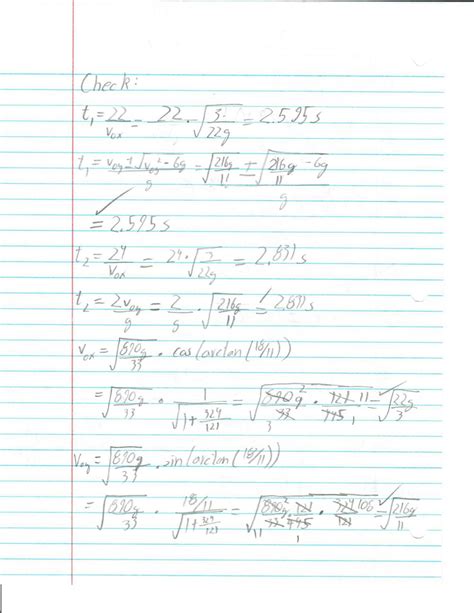 Check:
t₁ = 22/v₀ₓ = 22 · √(3/22g) = 2.595 s
t₁ = (v₀y ± √(v₀y² − 6g))/g = (√(216g/11) ± √(216g/11 − 6g))/g
= 2.595 s
t₂ = 24/v₀ₓ = 24 · √(3/22g) = 2.831 s
t₂ = 2v₀y/g = 2/g · √(216g/11) = 2.831 s
v₀ₓ = √(890g/33) · cos(arctan(18/11))
= √(890g/33) · 1/√(1 + 324/121) = √(890g/33 · 121/445) = √(22g/3)
v₀y = √(890g/33) · sin(arctan(18/11))
= √(890g/33) · (18/11)/√(1 + 324/121) = √(890g/33 · 121/445 · 324/121) = √(216g/11)